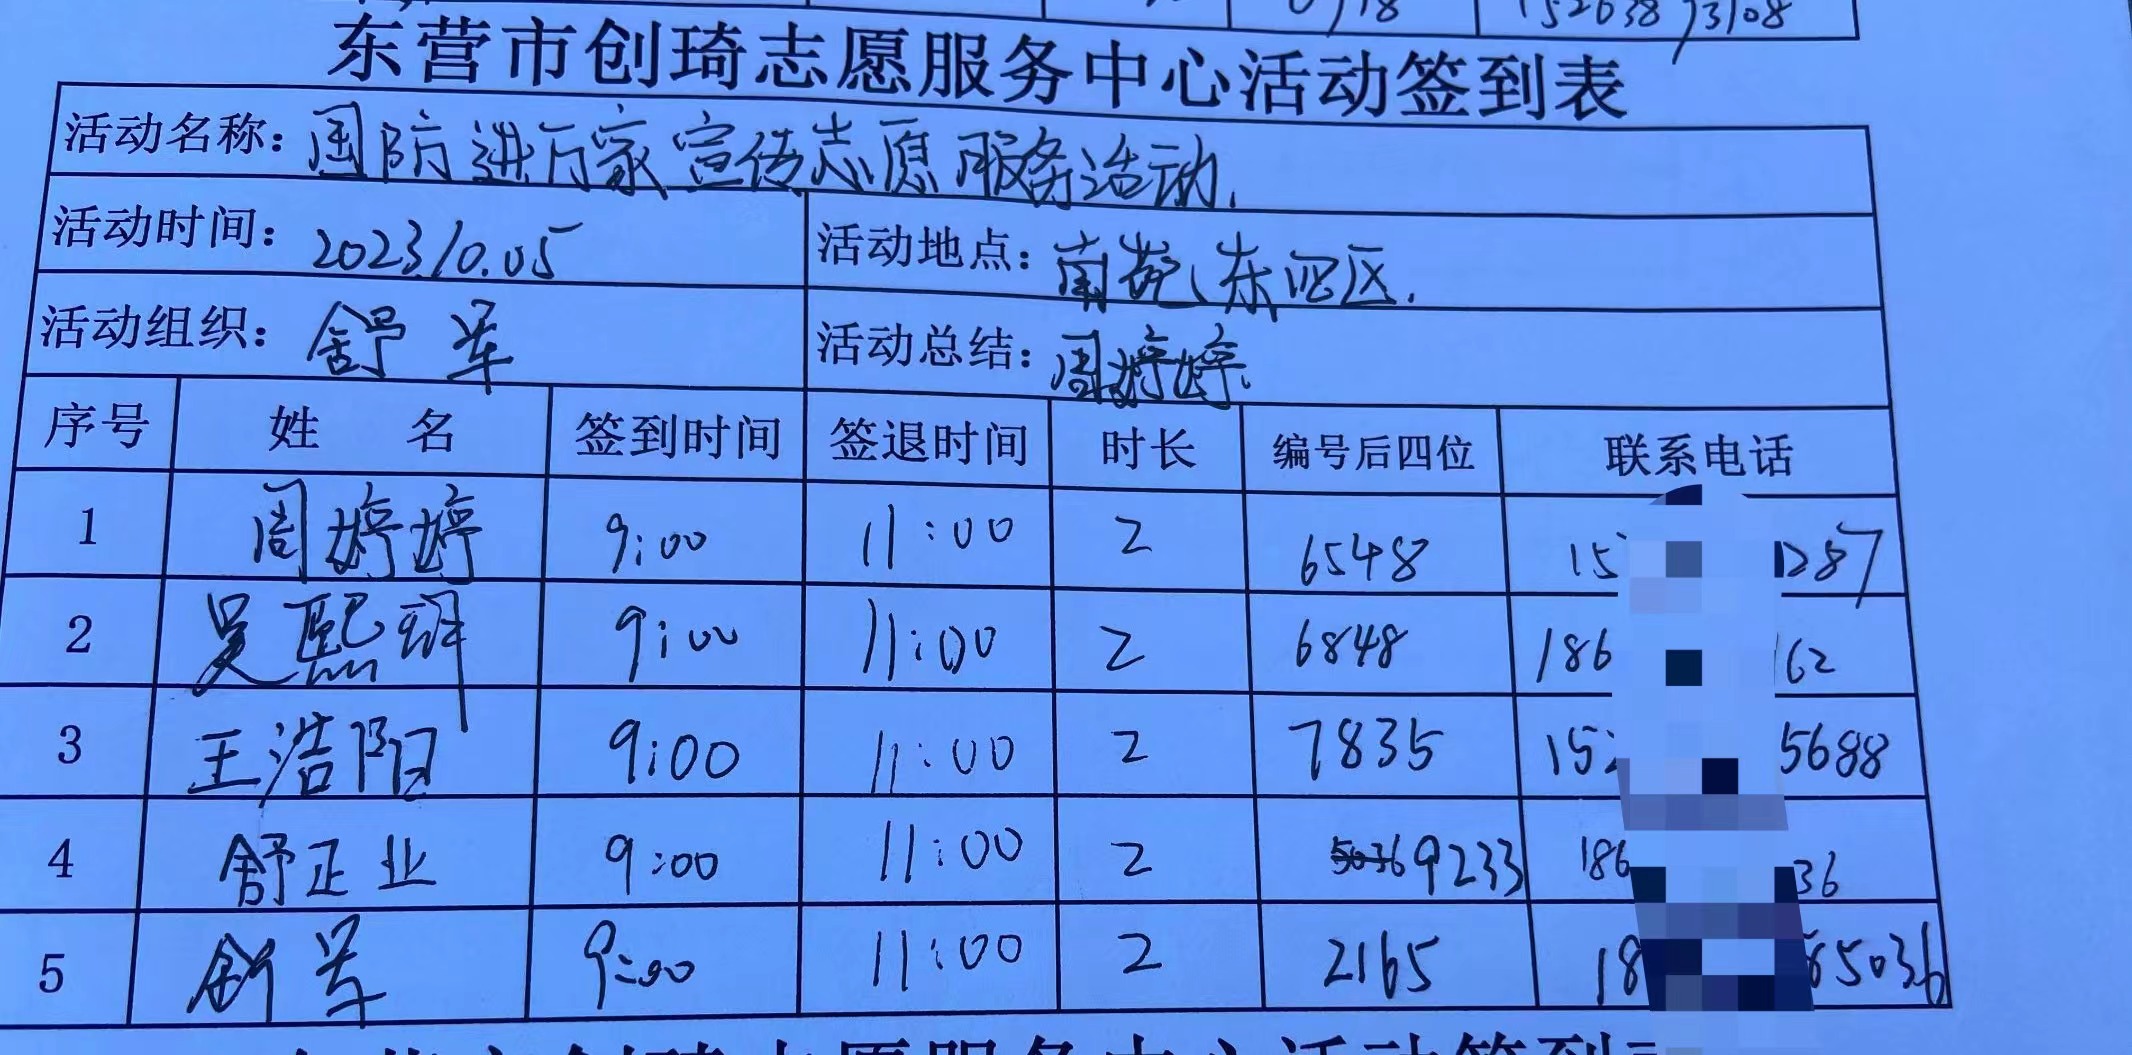 0718 15263873108
东营市创琦志愿服务中心活动签到表
活动名称：国防进万家宣传志愿服务活动.
活动时间：202310.05 活动地点：南苑东四区.
活动组织：舒军 活动总结：周婷婷.
序号 姓名 签到时间 签退时间 时长 编号后四位 联系电话
1 周婷婷 9:00 11:00 2 6548 15 287
2 吴熙 9:00 11:00 2 6848 186 62
3 王浩阳 9:00 11:00 2 7835 152 5688
4 舒正业 9:00 11:00 2 5036 9233 186 36
5 舒军 9:00 11:00 2 2165 18 65036
东营市创琦志愿服务中心活动签到表